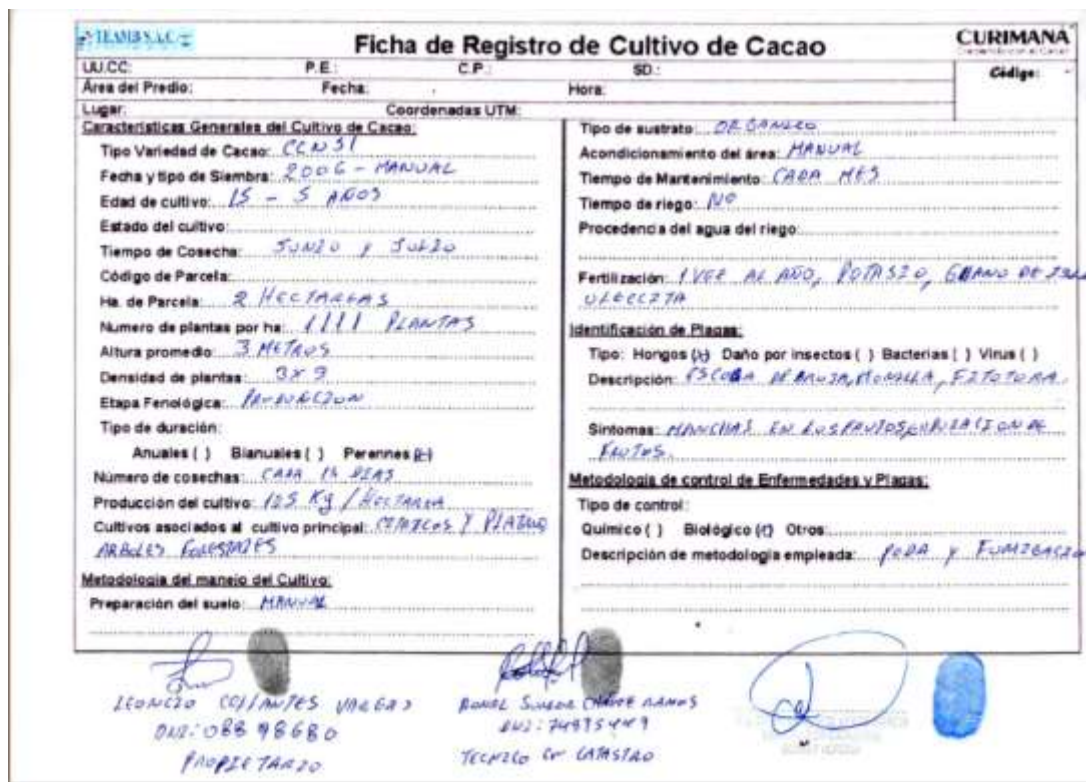 TEAMB S.A.C.
Ficha de Registro de Cultivo de Cacao
CURIMANÁ
UU.CC: P.E.: C.P.: SD.:
Código:
Área del Predio: Fecha: Hora:
Lugar: Coordenadas UTM:
Características Generales del Cultivo de Cacao:
Tipo Variedad de Cacao: CCN51
Fecha y tipo de Siembra: 2006 - MANUAL
Edad de cultivo: 15 - 5 AÑOS
Estado del cultivo:
Tiempo de Cosecha: JUNIO Y JULIO
Código de Parcela:
Ha. de Parcela: 2 HECTAREAS
Numero de plantas por ha: 1111 PLANTAS
Altura promedio: 3 METROS
Densidad de plantas: 3x3
Etapa Fenológica: PRODUCCION
Tipo de duración:
Anuales ( ) Bianuales ( ) Perennes (x)
Número de cosechas: CADA 15 DIAS
Producción del cultivo: 125 Kg / HECTAREA
Cultivos asociados al cultivo principal: CITRICOS Y PLATANO
ARBOLES FORESTALES
Metodologia del manejo del Cultivo:
Preparación del suelo: MANUAL
Tipo de sustrato: ORGANICO
Acondicionamiento del área: MANUAL
Tiempo de Mantenimiento: CADA MES
Tiempo de riego: NO
Procedencia del agua del riego:
Fertilización: 1 VEZ AL AÑO, POTASIO, GUANO DE ISLA
Identificación de Plagas:
Tipo: Hongos (x) Daño por insectos ( ) Bacterias ( ) Virus ( )
Descripción: ESCOBA DE BRUJA, MONILLA, FITOTORA.
Síntomas: MANCHAS EN LOS FRUTOS, DE
FRUTOS.
Metodología de control de Enfermedades y Plagas:
Tipo de control:
Químico ( ) Biológico (x) Otros:
Descripción de metodología empleada: PODA Y FUMIGACIO
LEONCIO COLLANTES VARGAS
DNI: 08898680
PROPIETARIO
RONAL RAMOS
DNI: 74975449
TECNICO EN CATASTRO